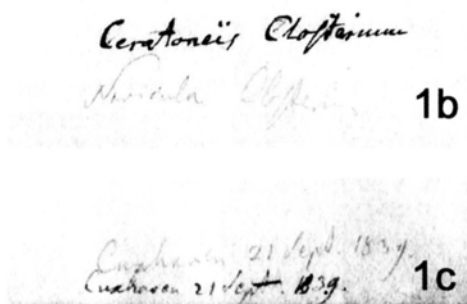 Ceratoneïs Closterium
Navicula Closterium
1b
Cuxhaven 21 Sept. 1839.
Cuxhaven 21 Sept. 1839.
1c